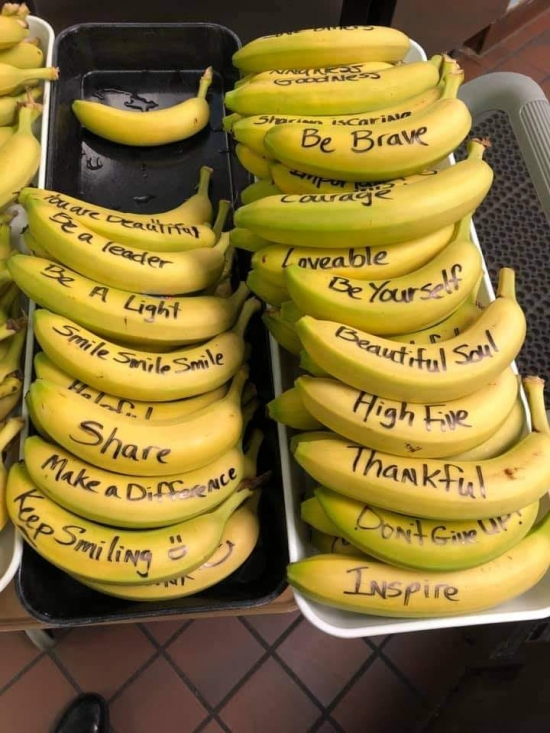 You are Beautiful
Be a leader
Be A Light
Smile Smile Smile
Helpful
Share
Make a Difference
Keep Smiling
Kindness
Goodness
Sharing is Caring
Be Brave
Courage
Loveable
Be Yourself
Beautiful Soul
High Five
Thankful
Don't Give Up!
Inspire